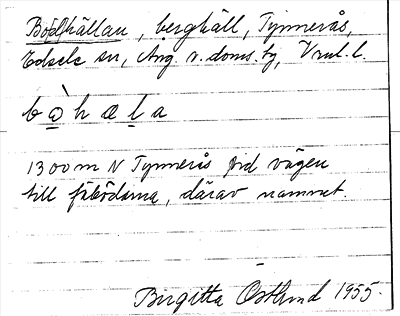 Bödhällan, berghäll, Tynnerås,
Edsele sn, Ång. v. doms. fg, Vrml. l.
bò̲hæl̲a
1300 m N Tynnerås vid vägen
till fäbodarna, därav namnet.
Birgitta Östlund 1955.